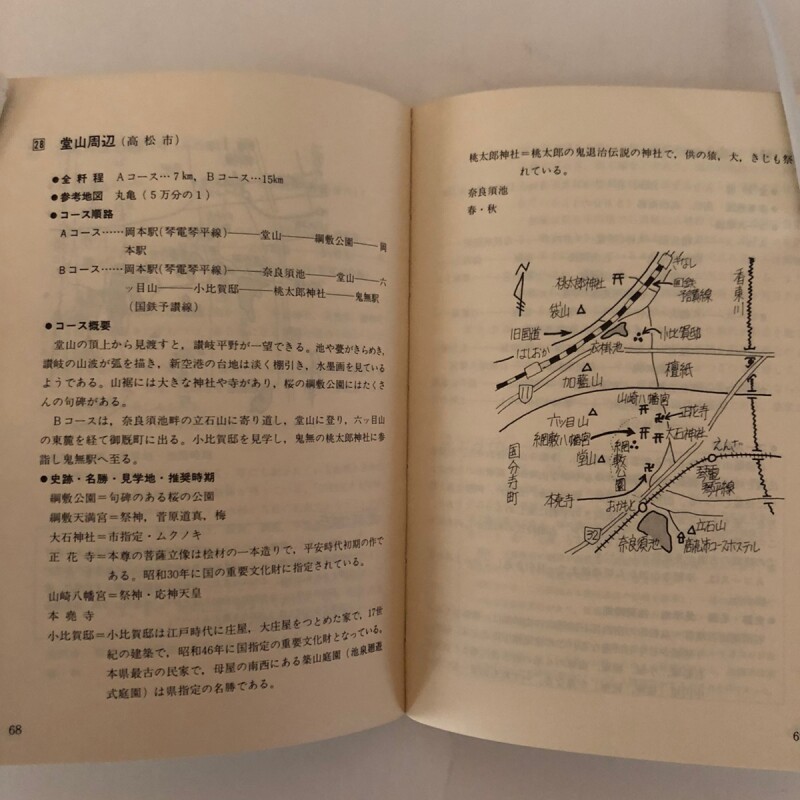 28 堂山周辺(高松市)
●全粁程 Aコース…7km，Bコース…15km
●参考地図 丸亀(5万分の1)
●コース順路
Aコース……岡本駅(琴電琴平線)――堂山――綱敷公園――岡
本駅
Bコース……岡本駅(琴電琴平線)――奈良須池――堂山――六
ッ目山――小比賀邸――桃太郎神社――鬼無駅
(国鉄予讃線)
●コース概要
堂山の頂上から見渡すと，讃岐平野が一望できる。池や甍がきらめき，
讃岐の山波が弧を描き，新空港の台地は淡く棚引き，水墨画を見ている
ようである。山裾には大きな神社や寺があり，桜の綱敷公園にはたくさ
んの句碑がある。
Bコースは，奈良須池畔の立石山に寄り道し，堂山に登り，六ッ目山
の東麓を経て御厩町に出る。小比賀邸を見学し，鬼無の桃太郎神社に参
詣し鬼無駅へ至る。
●史跡・名勝・見学地・推奨時期
綱敷公園＝句碑のある桜の公園
綱敷天満宮＝祭神，菅原道真，梅
大石神社＝市指定・ムクノキ
正花寺＝本尊の菩薩立像は桧材の一本造りで，平安時代初期の作で
ある。昭和30年に国の重要文化財に指定されている。
山崎八幡宮＝祭神・応神天皇
本堯寺
小比賀邸＝小比賀邸は江戸時代に庄屋，大庄屋をつとめた家で，17世
紀の建築で，昭和46年に国指定の重要文化財となっている。
本県最古の民家で，母屋の南西にある築山庭園(池泉廻遊
式庭園)は県指定の名勝である。
68
桃太郎神社＝桃太郎の鬼退治伝説の神社で，供の猿，犬，きじも祭
れている。
奈良須池
春・秋
きなし
桃太郎神社
国鉄
予讃線
香東川
袋山
旧国道
小比賀邸
はしおか
衣掛池
檀紙
加藍山
11
山崎八幡宮
正花寺
六ッ目山
綱敷八幡宮
大石神社
国分寺町
堂山
綱敷公園
えんざ
琴電
琴平線
本堯寺
おかもと
32
立石山
奈良須池